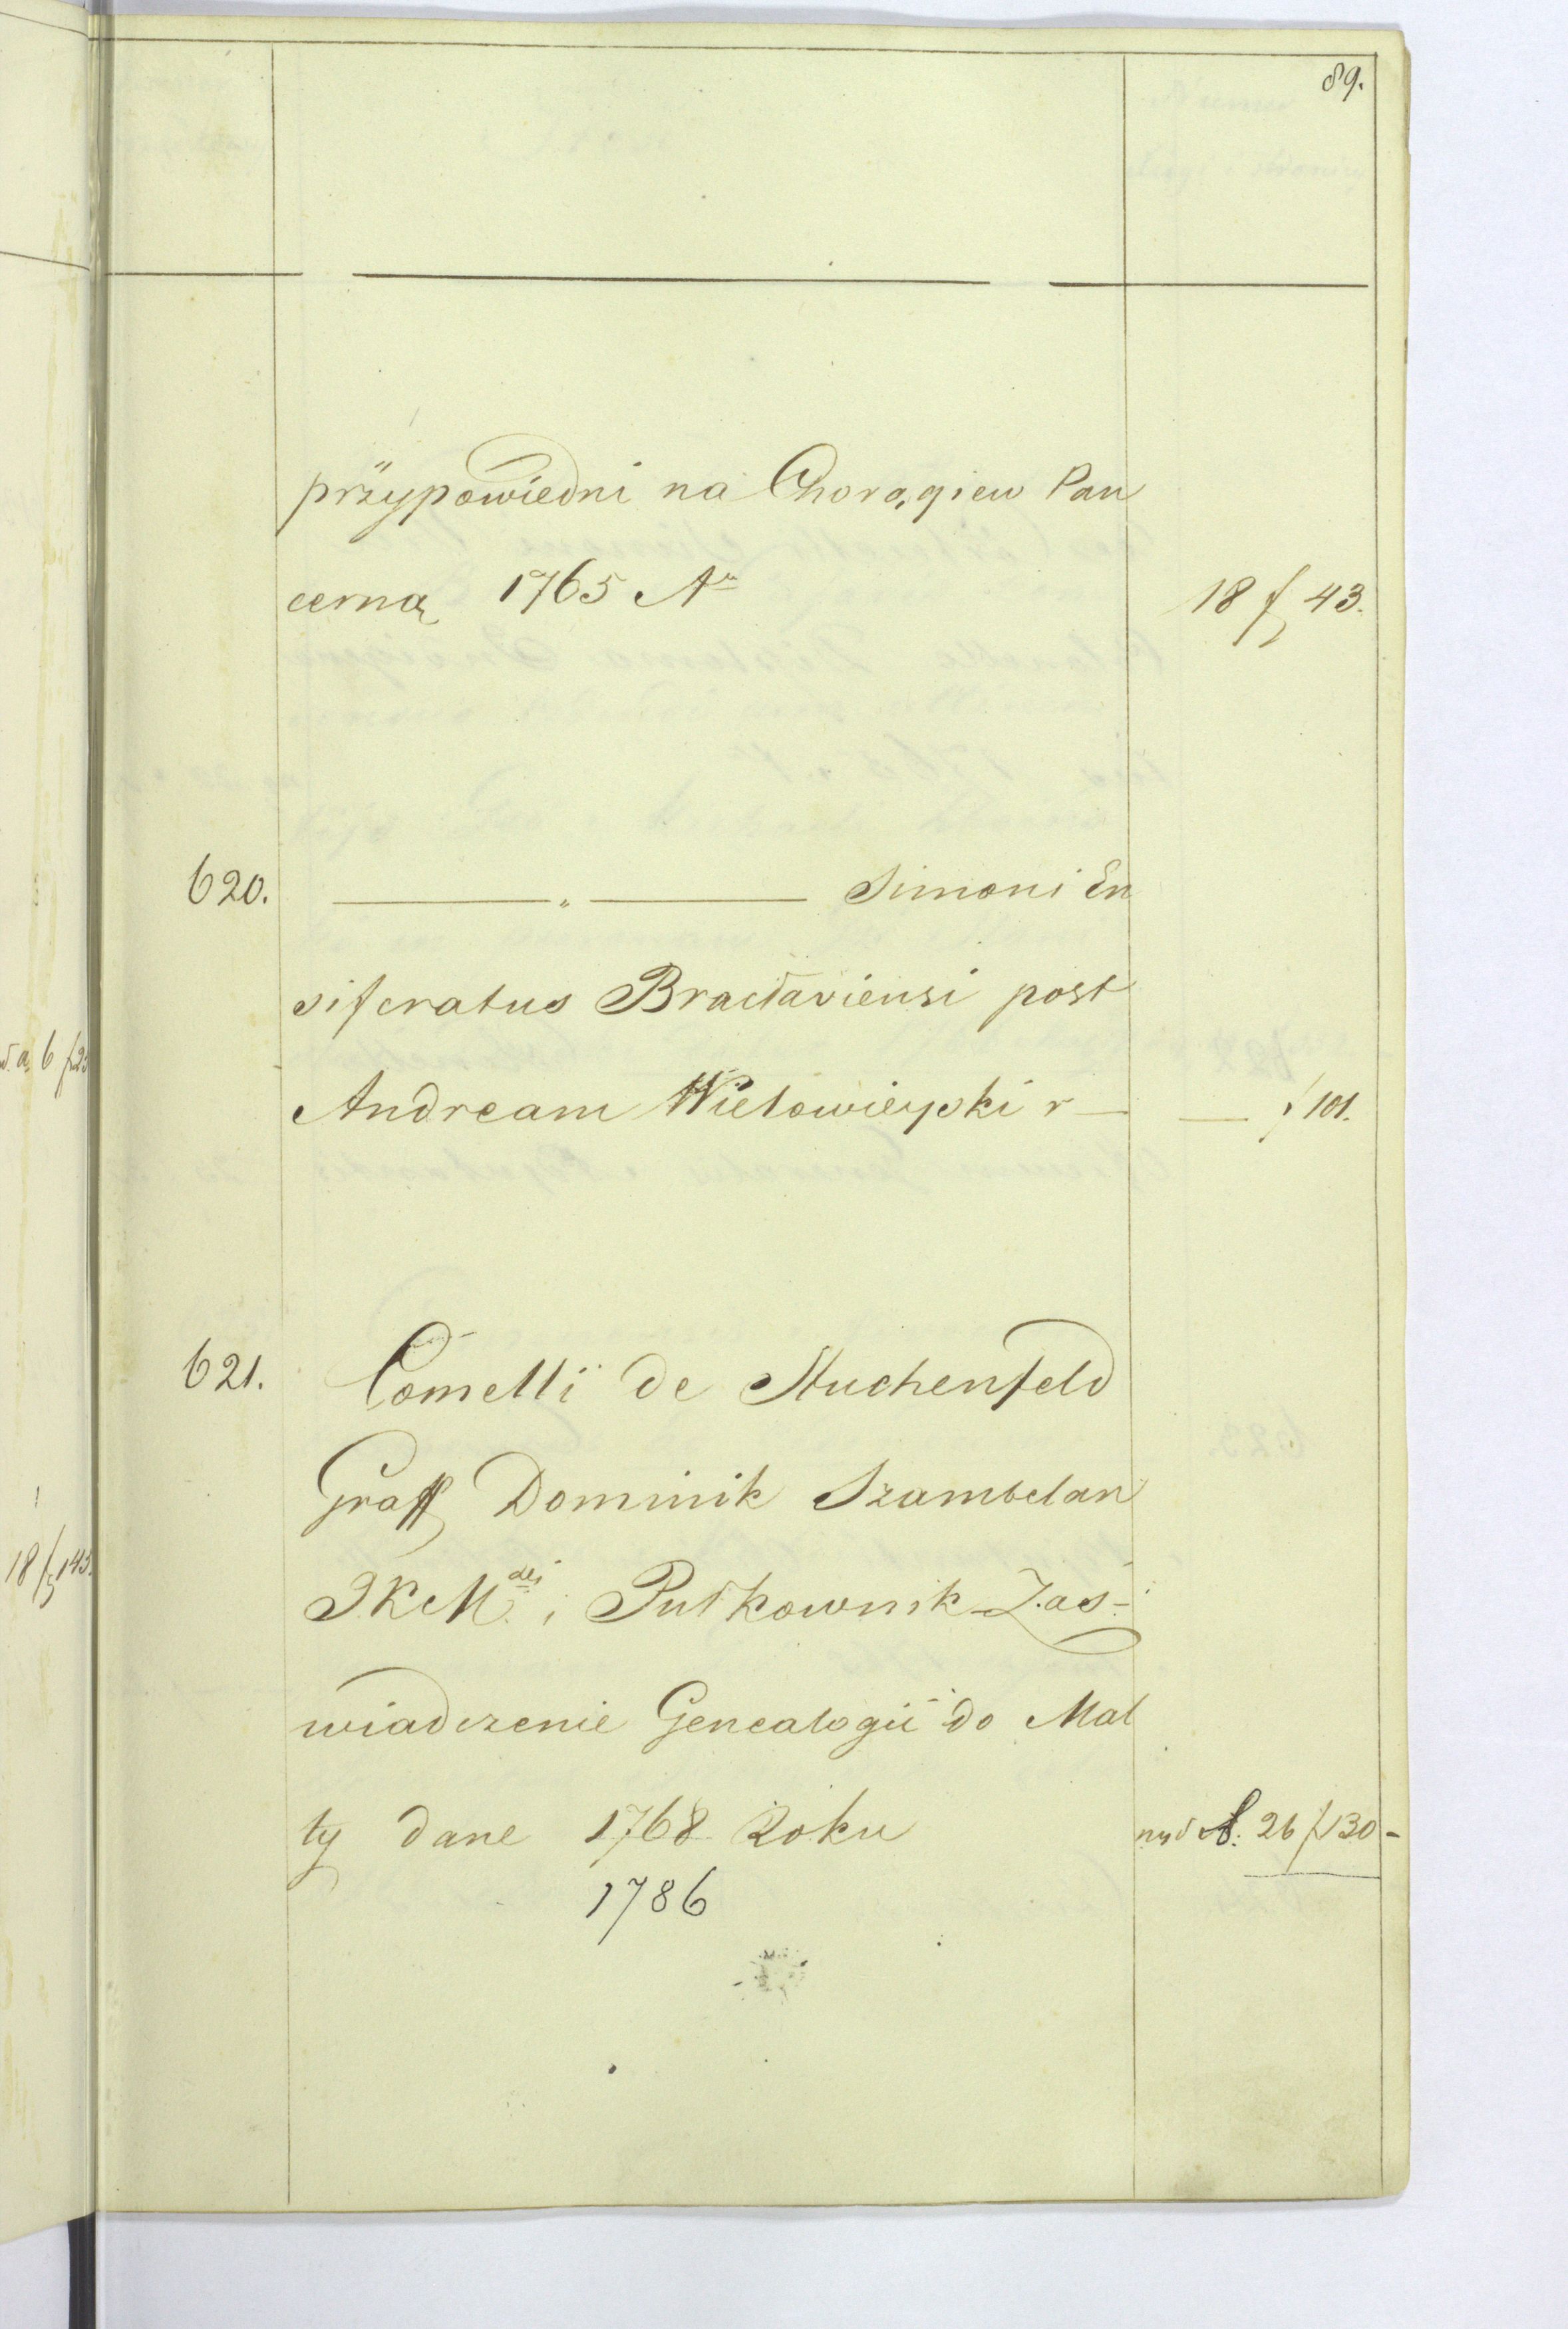 89.
przypowiedni na Chorągiew Pan
cerną 1765 Ao 18 f 43.
620. „ Simoni En
siferatus Bracłaviensi post
Andream Wielowieyski r — — f 101.
621. Comelli de Stuchenfeld
Graff Dominik Szambelan
JKMci i Pułkownik Zaś-
wiadczenie Genealogii do Mal
ty dane 1768 Roku 26 f 130 -
1786
18 f 143.